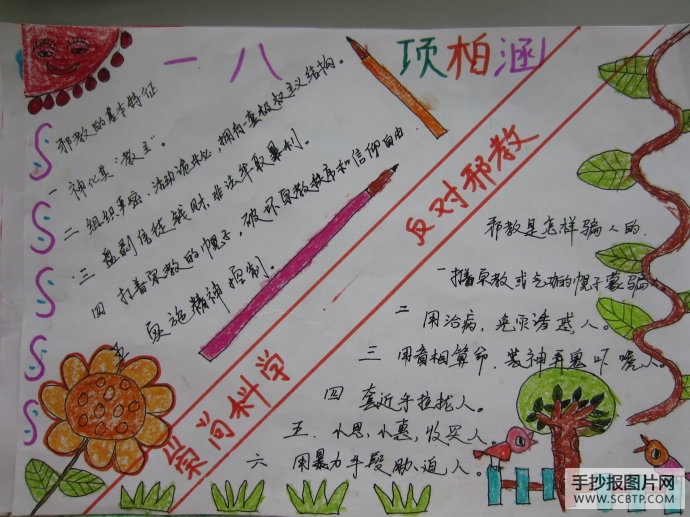 一八 项柏涵
邪教的基本特征
一 神化其“教主”。
二 组织严密,活动诡秘,拥有一套极权主义结构。
三 盘剥信徒钱财,非法牟取暴利。
四 打着宗教的幌子,破坏宗教秩序和信仰自由.
五 实施精神控制。
崇尚科学 反对邪教
邪教是怎样骗人的.
一 打着宗教或气功的幌子蒙骗
二 用治病,免灾诱惑人。
三 用看相算命,装神弄鬼吓唬人。
四 套近乎拉拢人。
五.小恩,小惠,收买人。
六 用暴力手段胁迫人。
手抄报图片网
WWW.SCBTP.COM